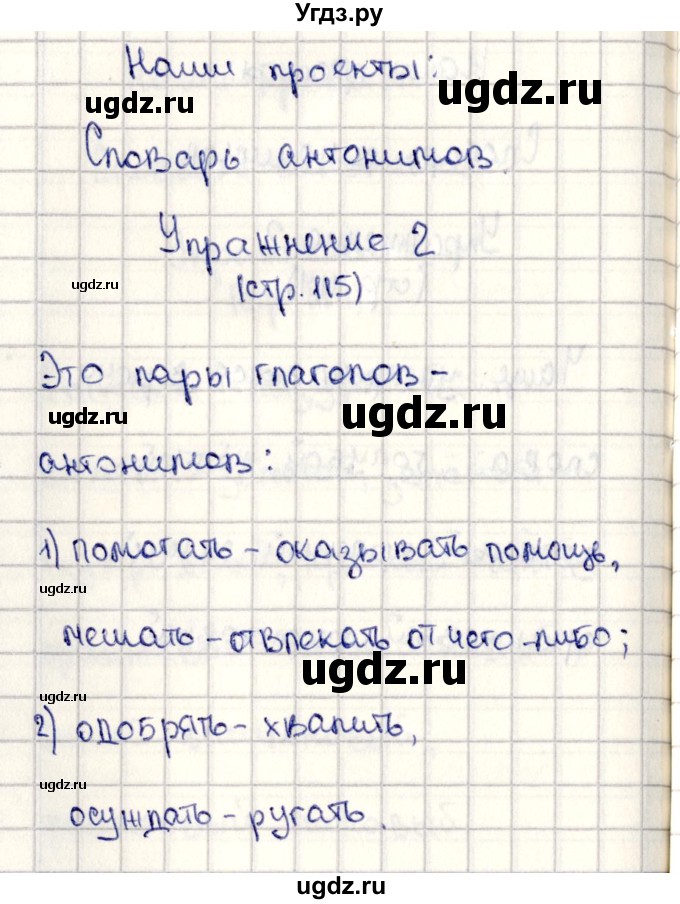 Угдз.ру
Наши проекты:
ugdz.ru
ugdz.ru
Словарь антонимов.
Упражнение 2
ugdz.ru
(стр. 115)
Это пары глаголов-
ugdz.ru
ugdz.ru
антонимов:
1) помогать - оказывать помощь,
ugdz.ru
мешать - отвлекать от чего-либо;
ugdz.ru
2) одобрять - хвалить,
ugdz.ru
осуждать - ругать.
ugdz.ru